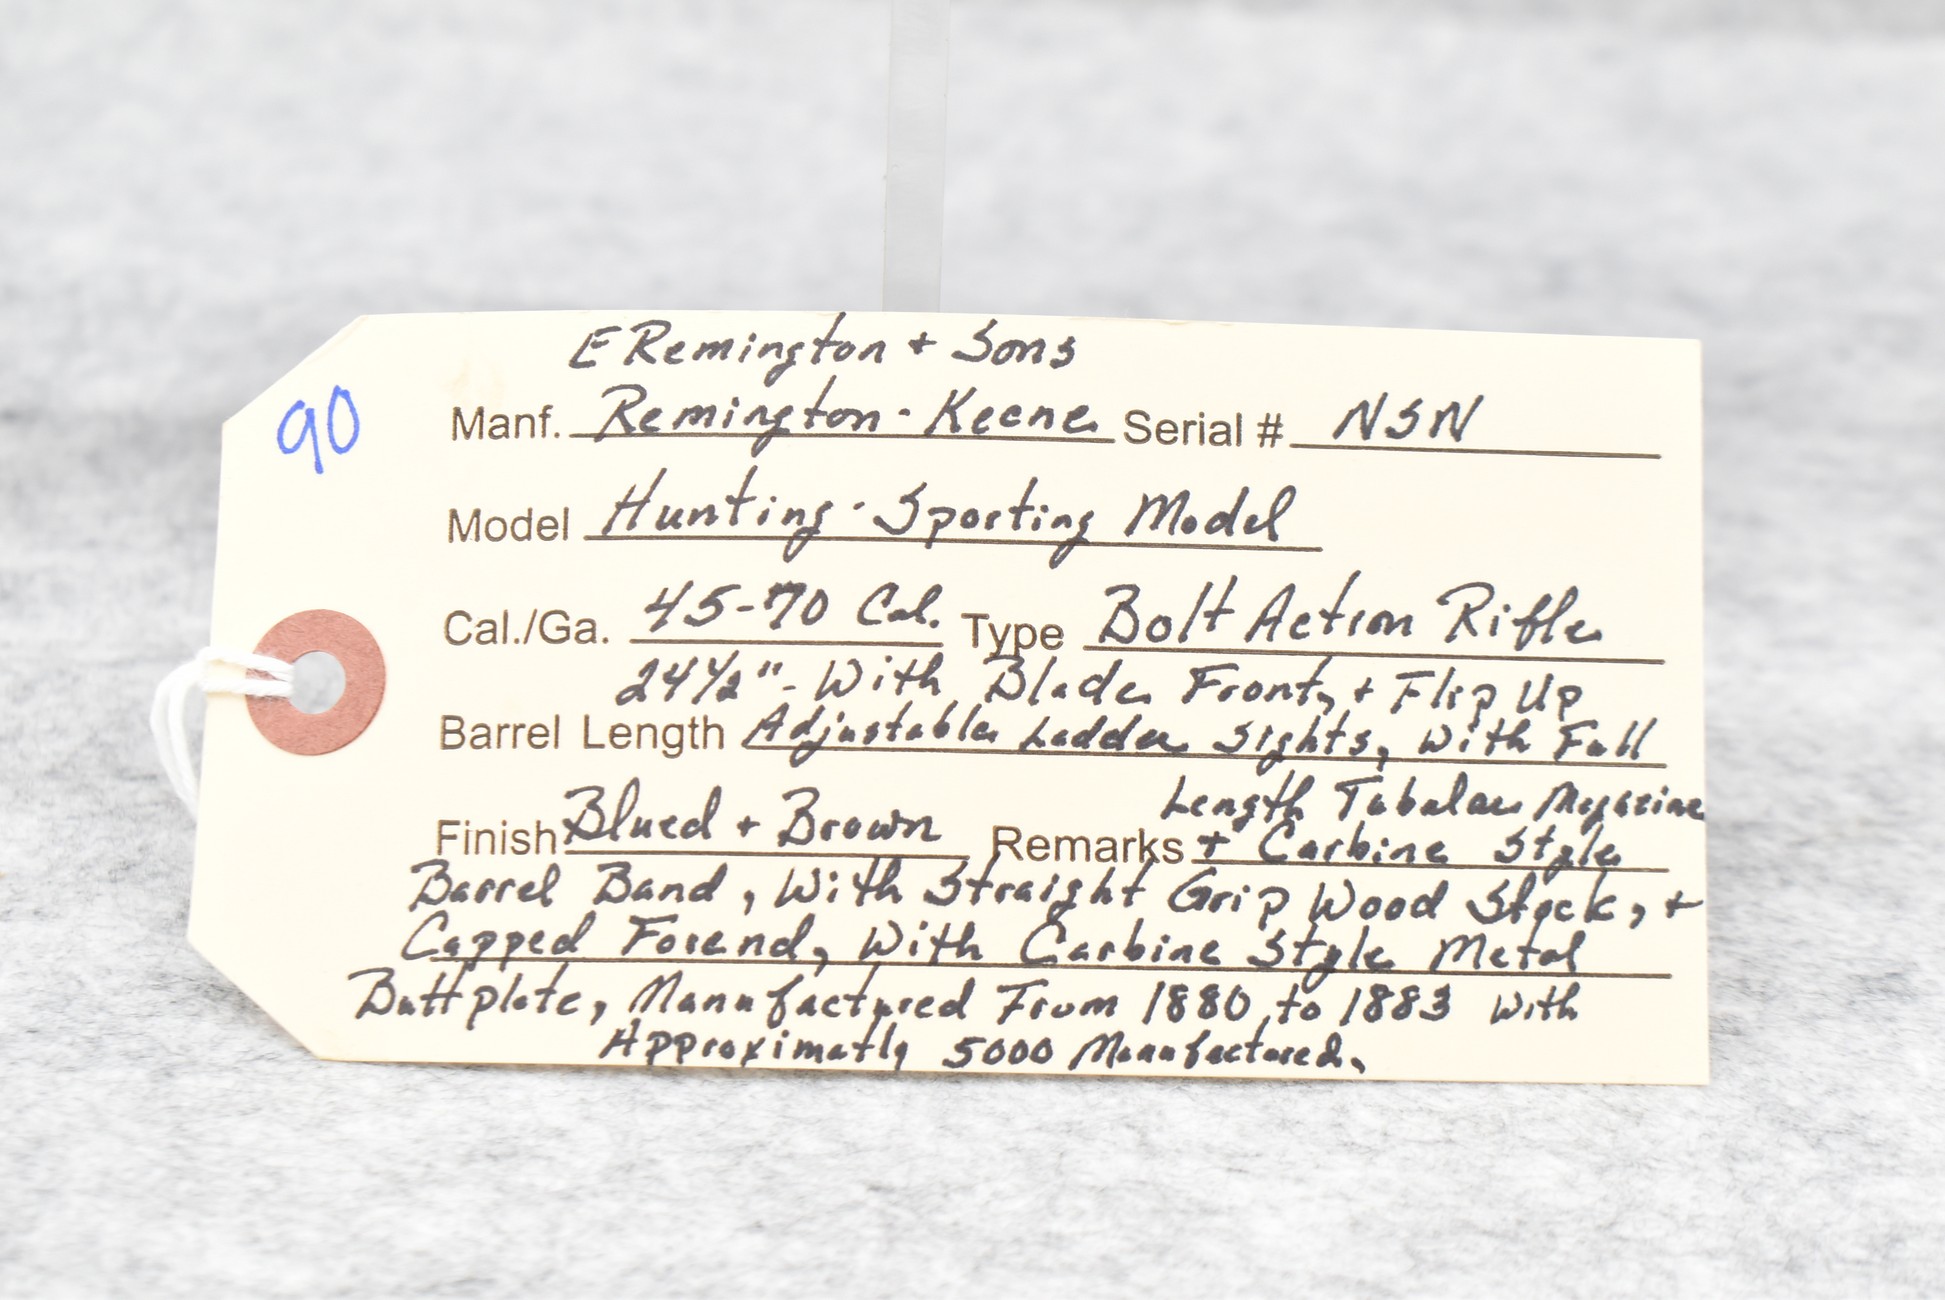 E Remington + Sons
90
Manf. Remington-Keene Serial # NSN
Model Hunting-Sporting Model
Cal./Ga. 45-70 Cal. Type Bolt Action Rifle
24½"- With Blade Front, + Flip Up
Barrel Length Adjustable Ladder Sights, With Full
Length Tubular Magazine
Finish Blued + Brown Remarks + Carbine Style
Barrel Band, With Straight Grip Wood Stock, +
Capped Forend, With Carbine Style Metal
Buttplate, Manufactured From 1880 to 1883 With
Approximatly 5000 Manufactured.